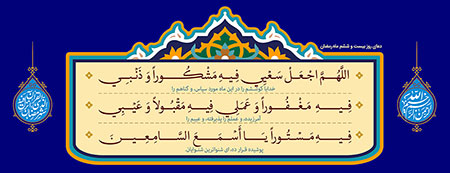 دعای روز بیست و ششم ماه رمضان
اللَّهُمَّ اجْعَلْ سَعْیِی فِیهِ مَشْکُوراً وَ ذَنْبِی
خدایا کوششم را در این ماه مورد سپاس، و گناهم را
فِیهِ مَغْفُوراً وَ عَمَلِی فِیهِ مَقْبُولاً وَ عَیْبِی
آمرزیده، و عملم را پذیرفته، و عیبم را
فِیهِ مَسْتُوراً یَا أَسْمَعَ السَّامِعِینَ
پوشیده قرار ده، ای شنواترین شنوایان.